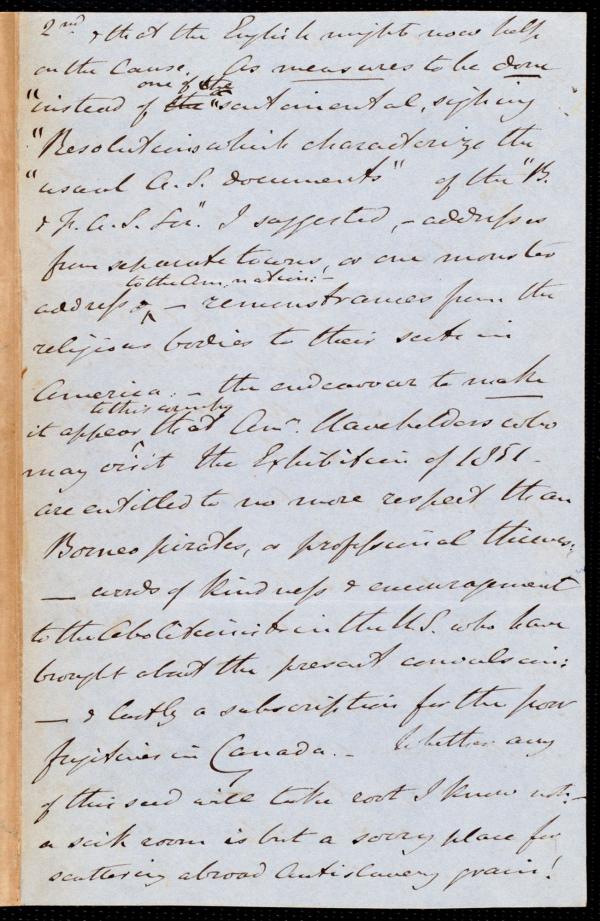 2nd & that the English might now help
on the cause. As measures to be done
one of the
"instead of the "sentimental, sighing
"Resolutions which characterize the
"usual A.S. documents" of the "B.
& F. A. S. Soc". I suggested, - addresses
from separate towns, or one monster
to the Am. nation: -
address - remonstrances from the
religious bodies to their sects in
America: - the endeavour to make
to this country
it appear that Amn. slaveholders who
may visit the Exhibition of 1851 -
are entitled to no more respect than
Borneo pirates, or professional thieves:
- words of kindness & encouragement
to the Abolitionists in the U.S. who have
brought about the present convulsion:
- & lastly a subscription for the poor
fugitives in Canada. - Whether any
of this seed will take root I know not: -
a sick room is but a sorry place for
scattering abroad antislavery grain!